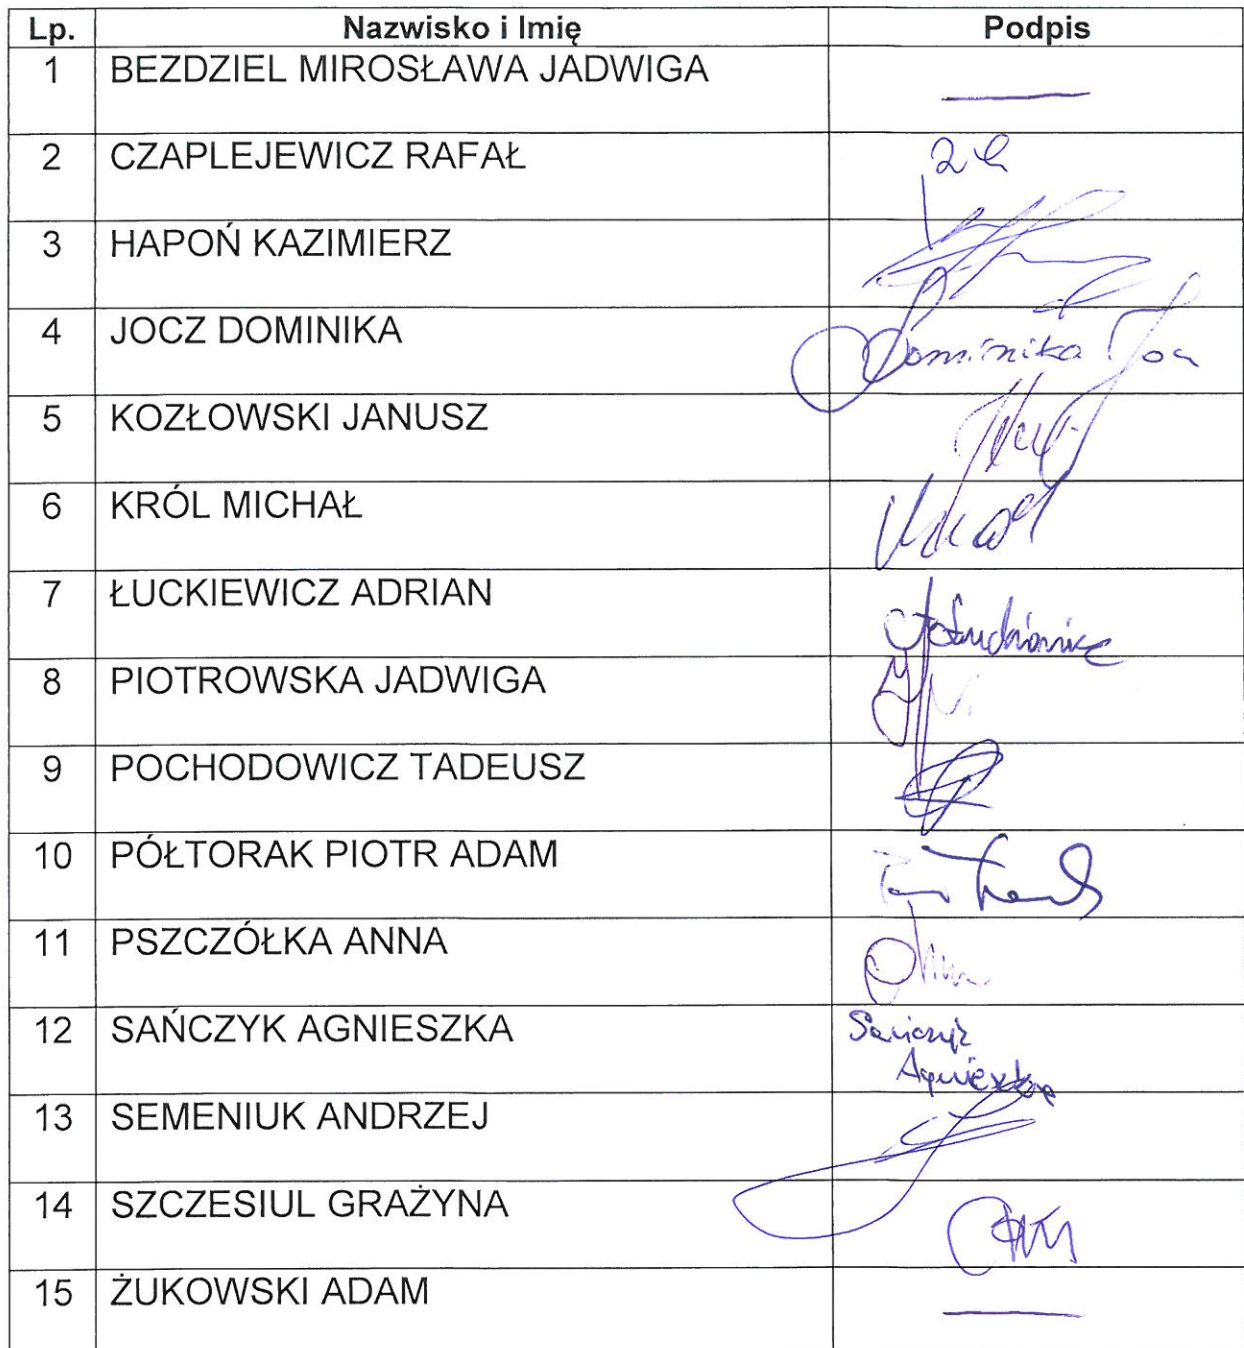 Lp. Nazwisko i Imię Podpis
1 BEZDZIEL MIROSŁAWA JADWIGA
2 CZAPLEJEWICZ RAFAŁ
3 HAPOŃ KAZIMIERZ
4 JOCZ DOMINIKA Dominika Jocz
5 KOZŁOWSKI JANUSZ
6 KRÓL MICHAŁ
7 ŁUCKIEWICZ ADRIAN
8 PIOTROWSKA JADWIGA
9 POCHODOWICZ TADEUSZ
10 PÓŁTORAK PIOTR ADAM
11 PSZCZÓŁKA ANNA
12 SAŃCZYK AGNIESZKA Sańczyk
Agnieszka
13 SEMENIUK ANDRZEJ
14 SZCZESIUL GRAŻYNA
15 ŻUKOWSKI ADAM